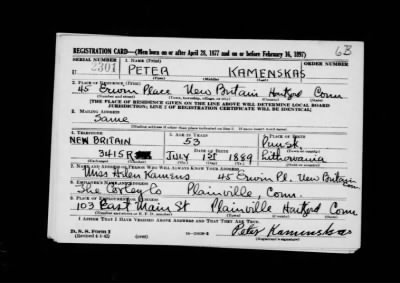 6B
REGISTRATION CARD—(Men born on or after April 28, 1877 and on or before February 16, 1897)
SERIAL NUMBER 1. NAME (Print) ORDER NUMBER
U 2301 PETER KAMENSKAS
(First) (Middle) (Last)
2. PLACE OF RESIDENCE (Print)
45 Erwin Place New Britain Hartford Conn
(Number and street) (Town, township, village, or city) (County) (State)
[THE PLACE OF RESIDENCE GIVEN ON THE LINE ABOVE WILL DETERMINE LOCAL BOARD
JURISDICTION; LINE 2 OF REGISTRATION CERTIFICATE WILL BE IDENTICAL]
3. MAILING ADDRESS
Same
[Mailing address if other than place indicated on line 2. If same insert word same]
4. TELEPHONE 5. AGE IN YEARS 6. PLACE OF BIRTH
NEW BRITAIN 53 Punsk,
DATE OF BIRTH (Town or county)
3415R JULY 1st 1889 Lithuwania
(Exchange) (Number) (Mo.) (Day) (Yr.) (State or country)
7. NAME AND ADDRESS OF PERSON WHO WILL ALWAYS KNOW YOUR ADDRESS
Miss Helen Kamens 45 Erwin Pl. New Britain
8. EMPLOYER'S NAME AND ADDRESS
The Co Plainville, Conn.
9. PLACE OF EMPLOYMENT OR BUSINESS
103 East Main St Plainville Hartford Conn
(Number and street or R. F. D. number) (Town) (County) (State)
I AFFIRM THAT I HAVE VERIFIED ABOVE ANSWERS AND THAT THEY ARE TRUE.
D. S. S. Form 1
(Revised 4-1-42) Peter Kamenskas
(Registrant's signature)